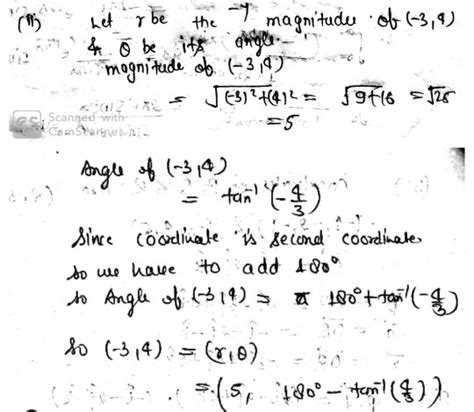 (ii) Let r be the magnitude of (-3,4)
& θ be its angle
magnitude of (-3,4)
= √(-3)²+(4)² = √9+16 = √25
= 5
CS Scanned with
CamScanner
Angle of (-3,4)
= tan⁻¹ (-4/3)
Since coordinate is second coordinate
so we have to add 180°
so Angle of (-3,4) = 180° + tan⁻¹(-4/3)
So (-3,4) = (r,θ)
= (5, 180° - tan⁻¹(4/3))